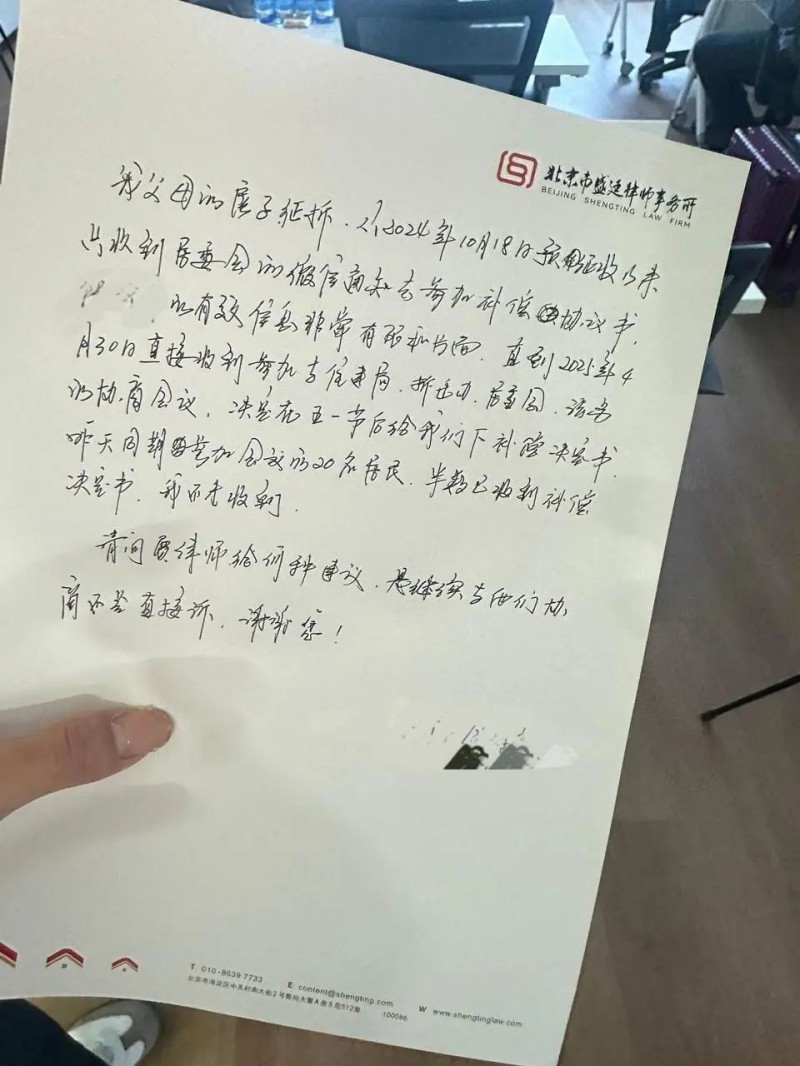 北京市盛廷律师事务所
BEIJING SHENGTING LAW FIRM
我父母的房子征拆.从2024年10月18日预征收以来
只收到居委会的微信通知去参加补偿协议书,
的有效信息非常有限和片面.直到2025年4
月30日直接收到参加与住建局.拆迁办.居委会.
的协商会议.决定在五一节后给我们下补偿决定书.
昨天同期参加会议的20名居民.半数已收到补偿
决定书.我还未收到.
请问贾律师给何种建议.是继续与他们协
商还是直接诉.谢谢您!
T 010-8639 7733
E content@shengting.com
W www.shengtinglaw.com
北京市海淀区中关村南大街2号数码大厦A座5层512室
100086